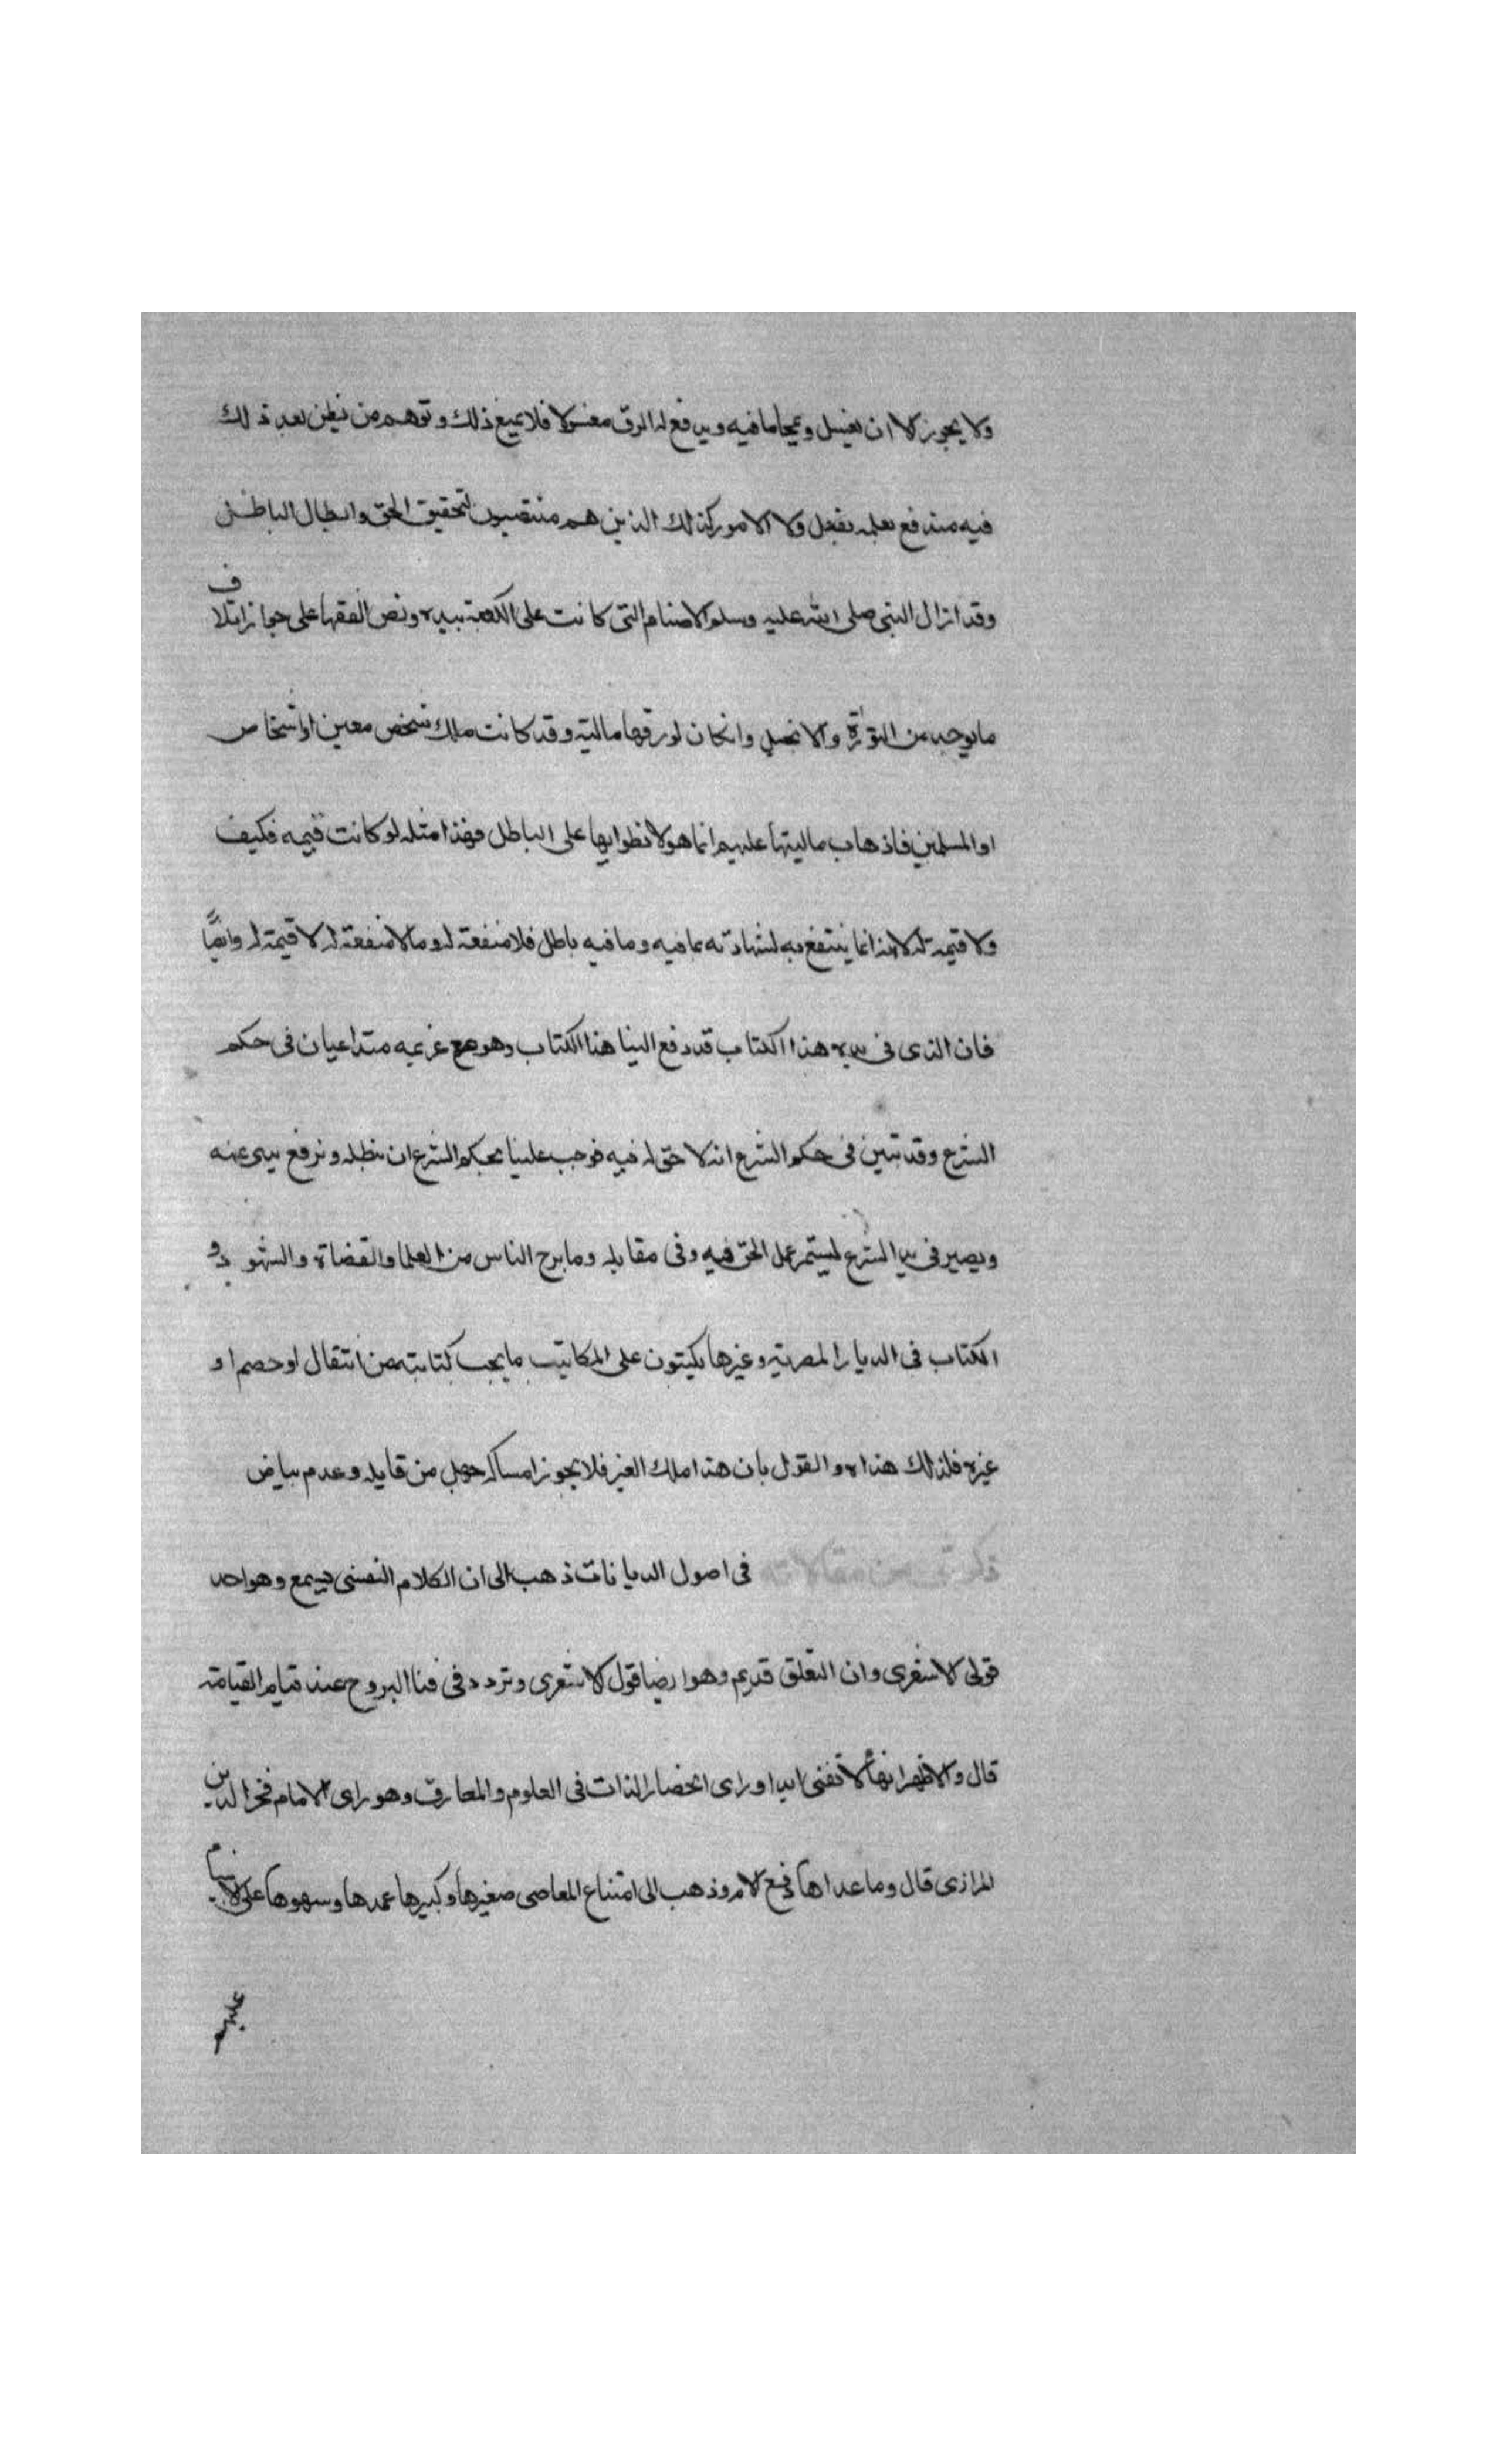 ولا يجوز الا ان يغسل ويمحا ما فيه ويدفع له الرق مغسولا فلا يمنع ذلك وتوهم من يظن بعد ذلك
فيه مندفع بعلمه بفعل ولا الامور كذلك الذين هم منتصبون لتحقيق الحق وابطال الباطل
وقد ازال النبي صلى الله عليه وسلم الاصنام التي كانت على الكعبة بيده ونص الفقها على جواز اتلاف
ما يوجد من التوراة والانجيل وان كان لورقها مالية وقد كانت ملك شخص معين او اشخاص
او المسلمين فاذهاب ماليتها عليهم انما هو لانطوايها على الباطل فهذا مثله لو كانت قيمه فكيف
ولا قيمة له لانه انما ينتفع به لشهادته بما فيه وما فيه باطل فلا منفعة له وما لا منفعة له لا قيمة له وايضا
فان الذى فى يده هذا الكتاب قد دفع الينا هذا الكتاب وهو مع غريمه متداعيان فى حكم
الشرع وقد تبين فى حكم الشرع انه لا حق له فيه فوجب علينا بحكم الشرع ان نبطله ونرفع يده عنه
ويصير فى يد الشرع ليستمر عمل الحق فيه وفى مقابله وما برح الناس من العلما والقضاة والشهود و
الكتاب فى الديار المصرية وغيرها يكتبون على المكاتيب ما يجب كتابته من انتقال او خصم او
غيره فلذلك هذا ه والقول بان هذا ملك الغير فلا يجوز امساكه جهل من قايله وعدم بياض
ذكر شى من مقالاته فى اصول الديانات ذهب الى ان الكلام النفسى يسمع وهو احد
قولى الاشعرى وان التعلق قديم وهو ايضا قول الاشعرى وتردد فى فنا الروح عند قيام القيامة
قال والاظهر انها لا تفنى ابدا وراى انحصار اللذات فى العلوم والمعارف وهو راى الامام فخر الدين
الرازى قال وما عداها دفع الام وذهب الى امتناع المعاصى صغيرها وكبيرها عمدها وسهوها على الانبيا
عليهم